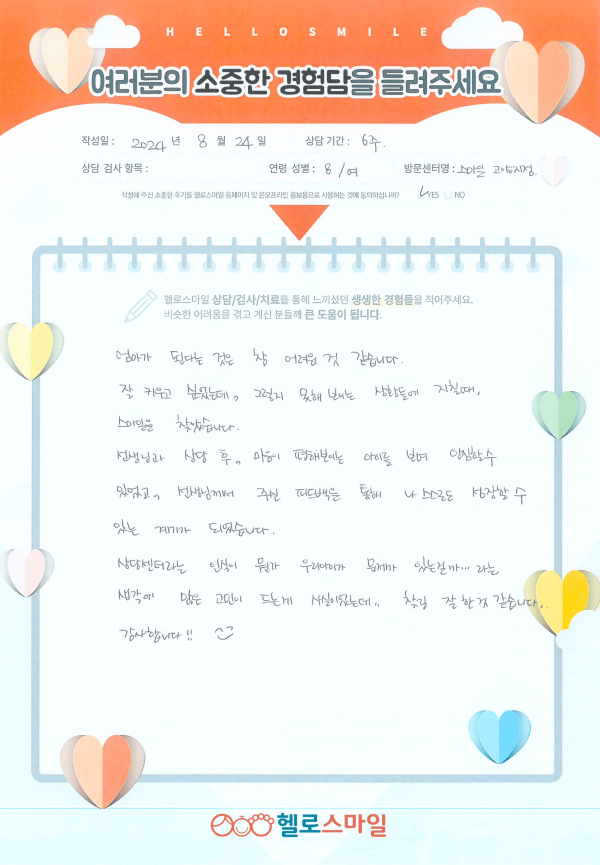 HELLOSMILE
여러분의 소중한 경험담을 들려주세요
작성일 : 2024 년 8 월 24 일 상담 기간 : 6주.
상담 검사 항목 : 연령 성별 : 8 / 여 방문센터명 : 스마일 고양지점.
작성해 주신 소중한 후기를 헬로스마일 홈페이지 및 온오프라인 홍보용으로 사용하는 것에 동의하십니까? YES NO
헬로스마일 상담/검사/치료를 통해 느끼셨던 생생한 경험들을 적어주세요.
비슷한 어려움을 겪고 계신 분들께 큰 도움이 됩니다.
엄마가 된다는 것은 참 어려운 것 같습니다.
잘 키우고 싶었는데, 그렇지 못해 보이는 상황들에 지칠때,
스마일을 찾았습니다.
선생님과 상담 후, 마음이 편해보이는 아이를 보며 안심할수
있었고, 선생님께서 주신 피드백을 통해 나 스스로도 성장할 수
있는 계기가 되었습니다.
상담센터라는 인식이 뭔가 우리아이가 문제가 있는걸까... 라는
생각에 많은 고민이 드는게 사실이었는데.. 찾길 잘 한것 같습니다..
감사합니다!!
헬로스마일